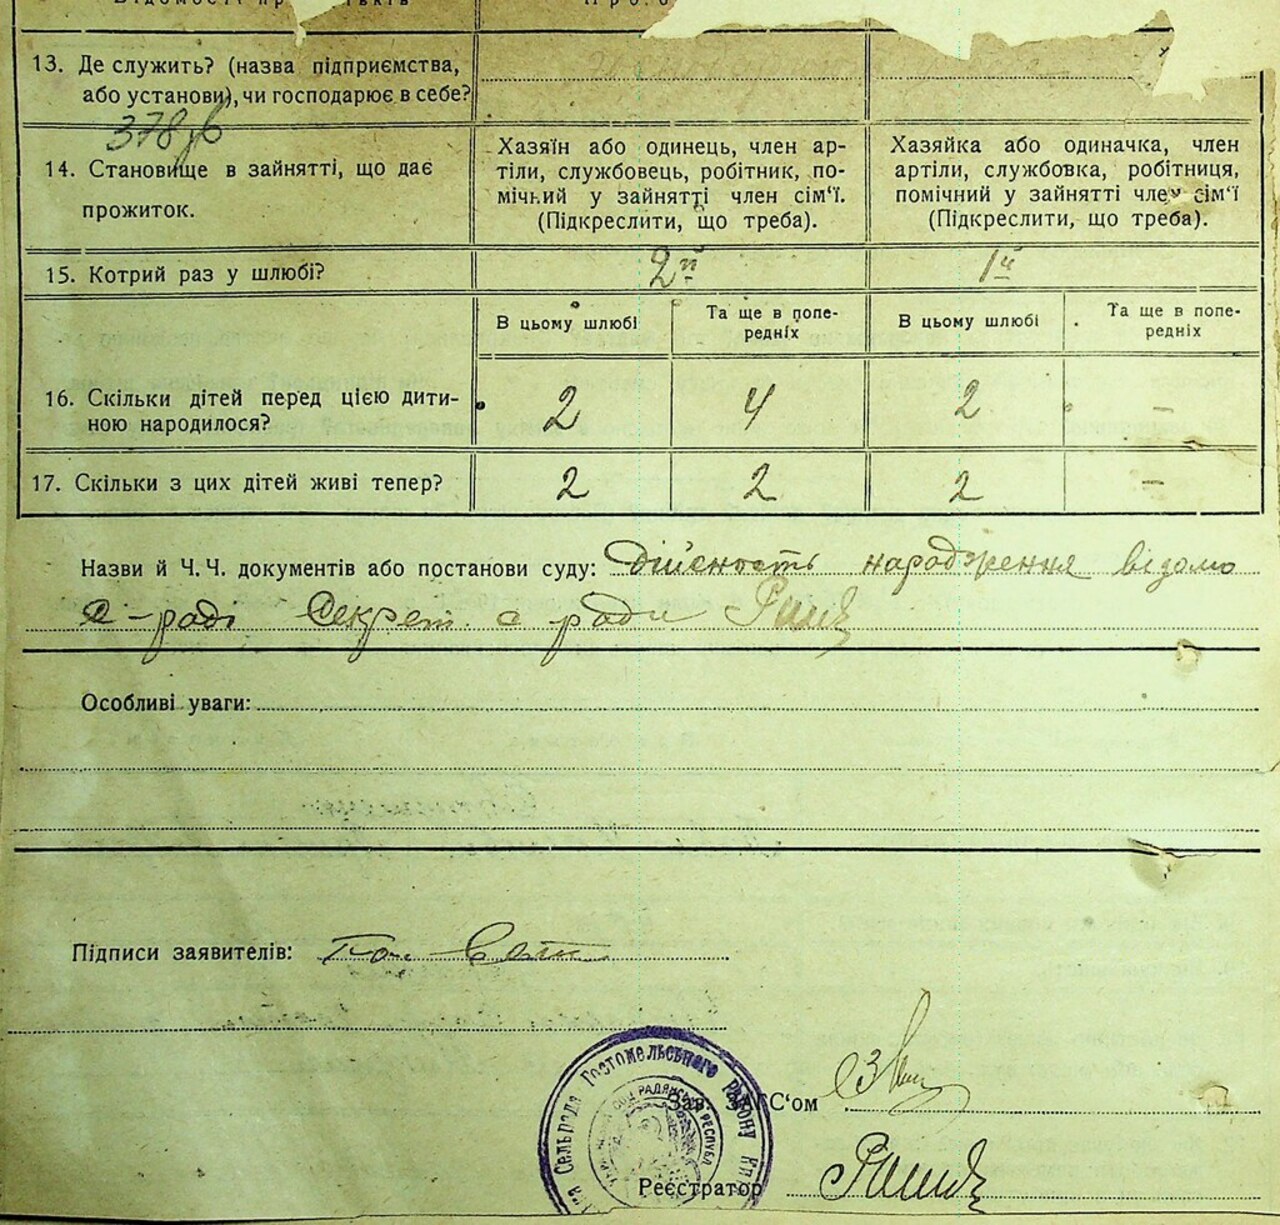 13. Де служить? (назва підприємства,
або установи), чи господарює в себе?
378
14. Становище в зайнятті, що дає
прожиток.
Хазяїн або одинець, член ар-
тіли, службовець, робітник, по-
мічний у зайнятті член сім'ї.
(Підкреслити, що треба).
Хазяйка або одиначка, член
артіли, службовка, робітниця,
помічний у зайнятті член сім'ї
(Підкреслити, що треба).
15. Котрий раз у шлюбі?
2й
1й
В цьому шлюбі
Та ще в попе-
редніх
В цьому шлюбі
Та ще в попе-
редніх
16. Скільки дітей перед цією дити-
ною народилося?
2 4 2 –
17. Скільки з цих дітей живі тепер?
2 2 2 –
Назви й Ч.Ч. документів або постанови суду: Дійсность народження відомо
с-раді Секрет. с ради
Особливі уваги:
Підписи заявителів:
Сельрада Гостомельського Району
Соц Радянськ Республ
Зав. ЗАГС'ом
Реєстратор